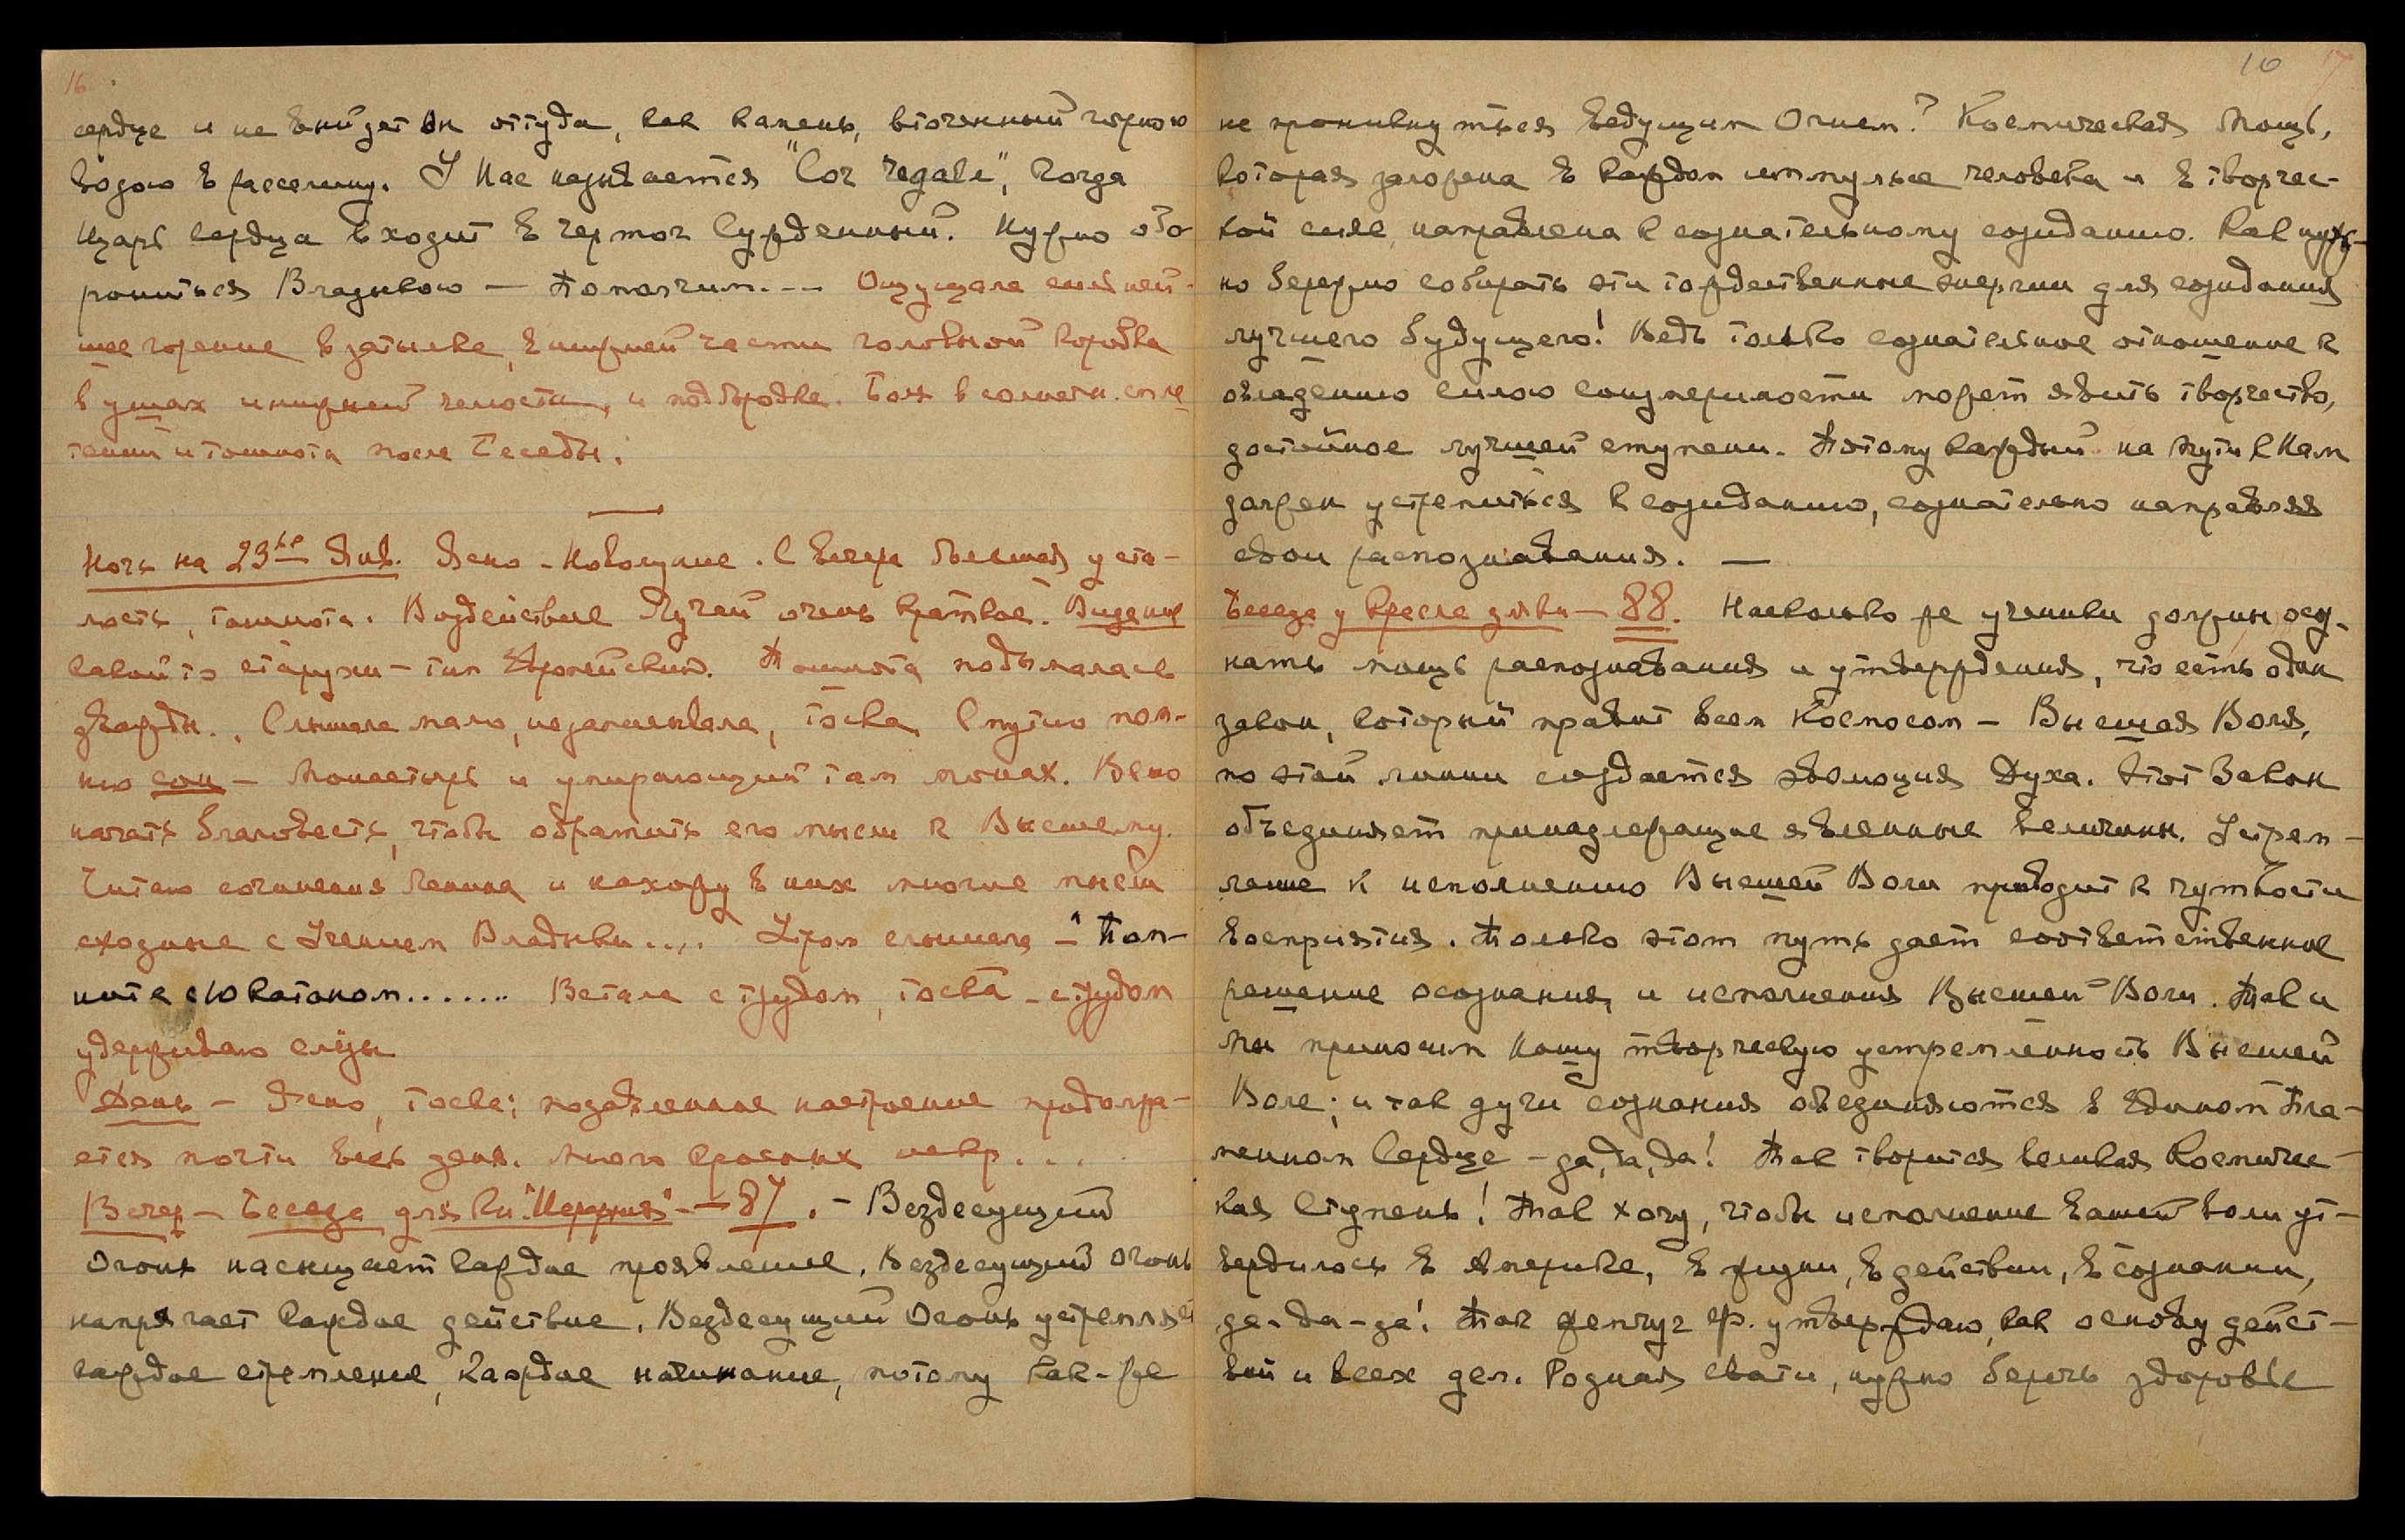 16.
сердце и не выйдет он оттуда, как камень, вточенный горною
водою в расселину. У Нас называется "Cor regale", когда
Царь Сердца входит в чертог Сужденный. Нужно обо-
рониться Владыкою — Помолчим. — Ощущала сильней-
шее горение в затылке, в нижней части головной коробки
в ушах и нижней челюсти, и подбородке. Боль в солнечн. спле
тении и тошнота после Беседы.
Ночь на 23ье Янв. Ясно - Новолуние. С вечера большая уста-
лость, тошнота. Воздействие Лучей очень краткое. Видение
какой то старухи - тип Европейский. Тошнота подымалась
дважды.. Слышала мало, не записывала, тоска. Смутно пом-
ню сон - Монастырь и умирающий там монах.
начать благовест, чтобы обратить его мысли к Высшему.
Читаю сочинения Ленина и нахожу в них многие мысли
сходные с Учением Владыки.... Утром слышала - "Пом-
ните с Юкатаном....... Встала с трудом, тоска - с трудом
удерживаю слезы
День - Ясно, тоска; подавленное настроение продолжа-
ется почти весь день. Много красных искр...
Вечер - Беседа для кн. "Иерархия" - 87. - Вездесущий
Огонь насыщает каждое проявление, Вездесущий Огонь
напрягает каждое действие, Вездесущий Огонь устремляет
каждое стремление, каждое начинание, потому как-же
10 17
не проникнуться Ведущим Огнем? Космическая Мощь,
которая заложена в каждом импульсе человека и в творчес-
кой силе, направлена к сознательному созиданию. Как нуж-
но бережно собирать эти тождественные энергии для созидания
лучшего будущего! Ведь только сознательное отношение к
овладению силою соизмеримости может явить творчество,
достойное лучшей ступени. Потому каждый на пути к Нам
должен устремиться к созиданию, сознательно направляя
свои распознавания. —
Беседа у Кресла для кн — 88. Насколько же ученики должны осоз-
нать мощь распознавания и утверждения, что есть один
закон, который правит всем Космосом - Высшая Воля,
по этой линии создается эволюция Духа. Этот Закон
объединяет принадлежащие явленные величины. Устрем-
ление к исполнению Высшей Воли приводит к чуткости
восприятия. Только этот путь дает соответственное
решение осознания, и исполнения Высшей Воли. Так и
Мы приносим Нашу творческую устремленность Высшей
Воле; и так лучи сознания объединяются в Едином Пла-
менном Сердце - да, да, да! Так творится великая Космичес-
кая Ступень! Так хочу, чтобы исполнение вашей воли ут-
вердилось в Америке, в жизни, в действии, в сознании,
да-да-да! Так жемчуг Ф. утверждаю, как основу дейст-
вий и всех дел. Родная Свати, нужно беречь здоровье